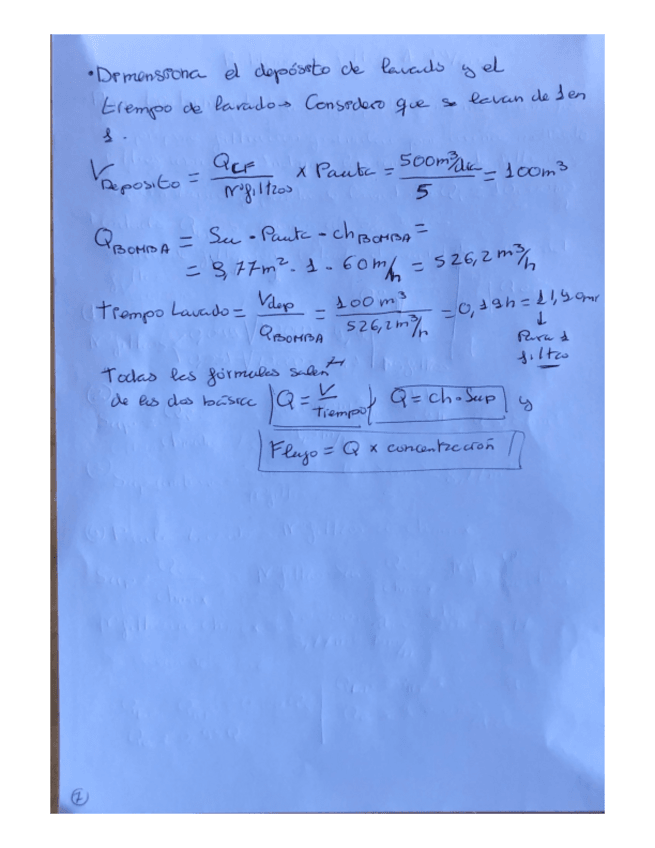 • Dimensiona el depósito de lavado y el
tiempo de lavado → Considero que se lavan de 1 en
1.
V Deposito = QCF / nº filtros x Pauta = 500m³/dia / 5 = 100m³
Q BOMBA = Su · Pauta · ch BOMBA =
= 8,77m² · 1 · 60 m/h = 526,2 m³/h
tiempo Lavado = Vdep / Q BOMBA = 100 m³ / 526,2 m³/h = 0,19h = 11,40 min
↓
Para 1
filtro
Todas las fórmulas salen
de las dos básica Q = V / tiempo Q = ch · Sup y
Flujo = Q x concentración
1